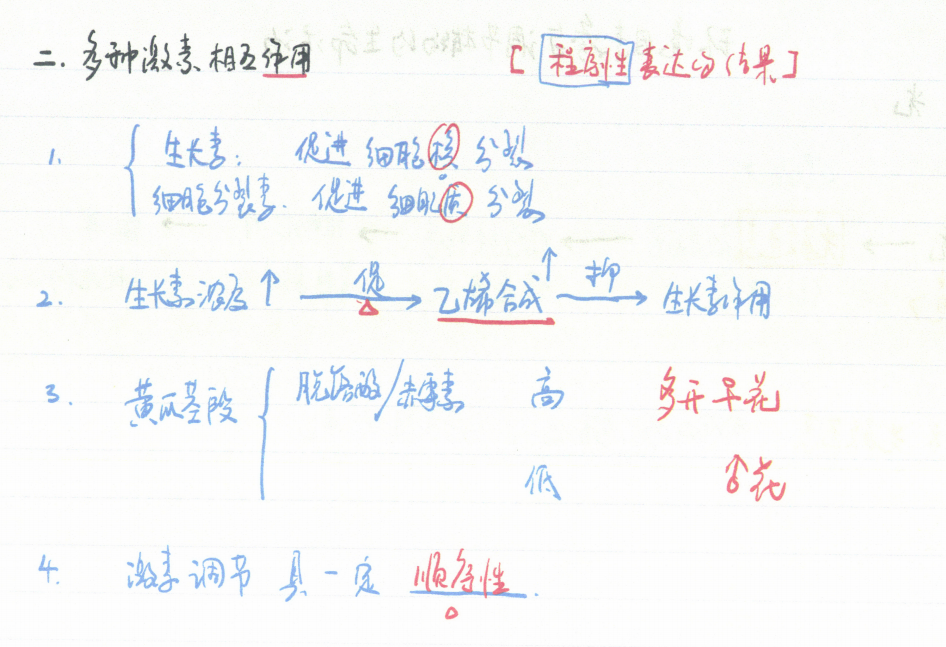 二. 多种激素相互作用 [程序性表达的结果]
1. { 生长素: 促进 细胞核分裂
细胞分裂素. 促进 细胞质分裂
2. 生长素浓度↑ —促→ 乙烯合成↑ —抑→ 生长素作用
3. 黄瓜茎段 { 脱落酸/赤霉素 高 多开早花
低 ↑花
4. 激素调节 具一定 顺序性.